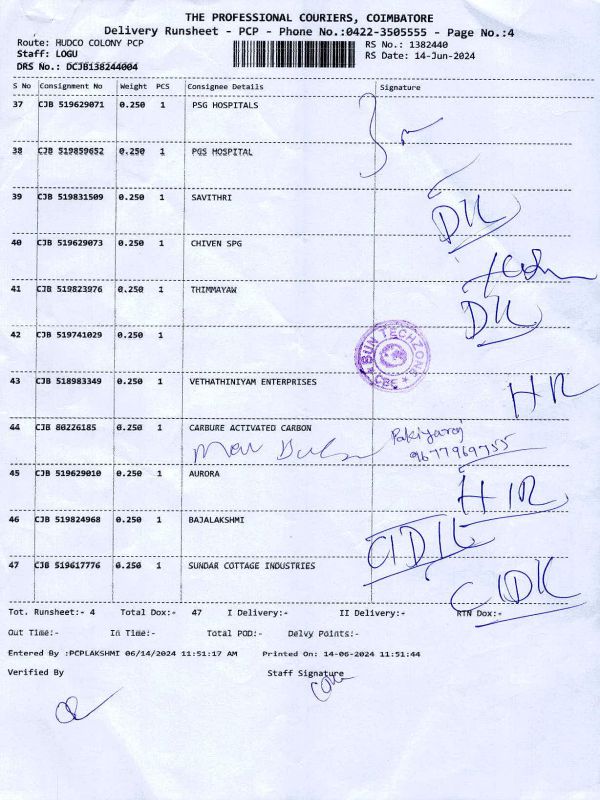 THE PROFESSIONAL COURIERS, COIMBATORE
Delivery Runsheet - PCP - Phone No.:0422-3505555 - Page No.:4
Route: HUDCO COLONY PCP RS No.: 1382440
Staff: LOGU RS Date: 14-Jun-2024
DRS No.: DCJB138244004
S No Consignment No Weight PCS Consignee Details Signature
37 CJB 519629071 0.250 1 PSG HOSPITALS
38 CJB 519859652 0.250 1 PGS HOSPITAL
39 CJB 519831509 0.250 1 SAVITHRI
40 CJB 519629073 0.250 1 CHIVEN SPG
41 CJB 519823976 0.250 1 THIMMAYAW
42 CJB 519741029 0.250 1
SUN TECHZONE
CBE
43 CJB 518983349 0.250 1 VETHATHINIYAM ENTERPRISES
44 CJB 80226185 0.250 1 CARBURE ACTIVATED CARBON
9677969755
45 CJB 519629010 0.250 1 AURORA
46 CJB 519824968 0.250 1 BAJALAKSHMI
47 CJB 519617776 0.250 1 SUNDAR COTTAGE INDUSTRIES
Tot. Runsheet:- 4 Total Dox:- 47 I Delivery:- II Delivery:- RTN Dox:-
Out Time:- In Time:- Total POD:- Delvy Points:-
Entered By :PCPLAKSHMI 06/14/2024 11:51:17 AM Printed On: 14-06-2024 11:51:44
Verified By Staff Signature